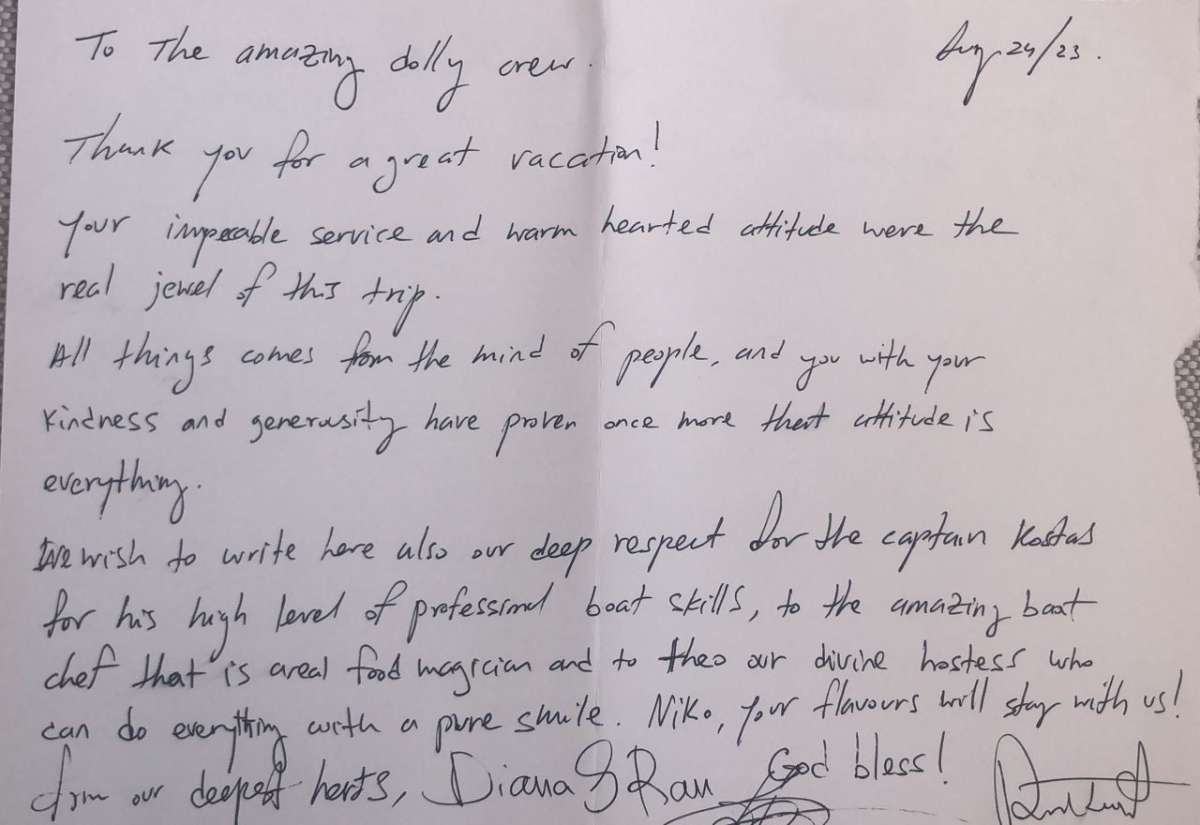 To The amazing dolly crew.
Aug 24/23.
Thank you for a great vacation!
Your impecable service and warm hearted attitude were the
real jewel of this trip.
All things comes from the mind of people, and you with your
kindness and generousity have proven once more that attitude is
everything.
We wish to write here also our deep respect for the captain Kostas
for his high level of professional boat skills, to the amazing boat
chef that is a real food magician and to theo our divine hostess who
can do everything with a pure smile. Niko, your flavours will stay with us!
from our deepest herts, Diana & Ran God bless!